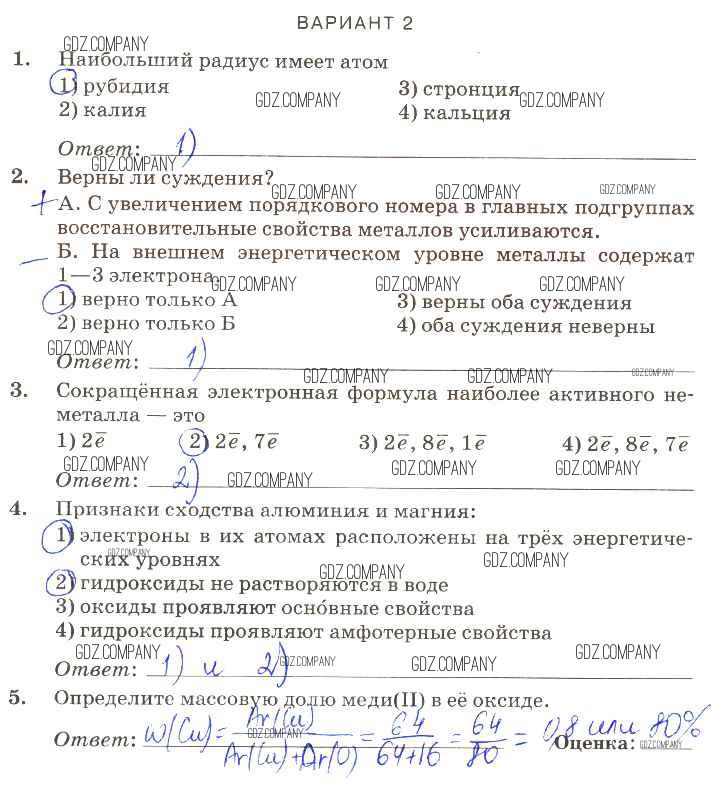 ВАРИАНТ 2
GDZ.COMPANY
1. Наибольший радиус имеет атом
1) рубидия 3) стронция
GDZ.COMPANY GDZ.COMPANY
2) калия 4) кальция
Ответ: 1)
GDZ.COMPANY
2. Верны ли суждения?
GDZ.COMPANY GDZ.COMPANY GDZ.COMPANY
+ А. С увеличением порядкового номера в главных подгруппах
восстановительные свойства металлов усиливаются.
– Б. На внешнем энергетическом уровне металлы содержат
1—3 электрона.
GDZ.COMPANY GDZ.COMPANY GDZ.COMPANY
1) верно только А 3) верны оба суждения
2) верно только Б 4) оба суждения неверны
GDZ.COMPANY
Ответ: 1)
GDZ.COMPANY GDZ.COMPANY GDZ.COMPANY
3. Сокращённая электронная формула наиболее активного не-
металла — это
1) 2e̅ 2) 2e̅, 7e̅ 3) 2e̅, 8e̅, 1e̅ 4) 2e̅, 8e̅, 7e̅
GDZ.COMPANY GDZ.COMPANY GDZ.COMPANY
Ответ: 2) GDZ.COMPANY
4. Признаки сходства алюминия и магния:
1) электроны в их атомах расположены на трёх энергетиче-
GDZ.COMPANY
ских уровнях GDZ.COMPANY
GDZ.COMPANY
2) гидроксиды не растворяются в воде
3) оксиды проявляют осно́вные свойства
4) гидроксиды проявляют амфотерные свойства
GDZ.COMPANY GDZ.COMPANY GDZ.COMPANY GDZ.COMPANY
Ответ: 1) и 2)
5. Определите массовую долю меди(II) в её оксиде.
Ответ: W(Cu) = Ar(Cu) / Ar(Cu)+Ar(O) = 64 / 64+16 = 64 / 80 = 0,8 или 80%
GDZ.COMPANY Оценка: GDZ.COMPANY